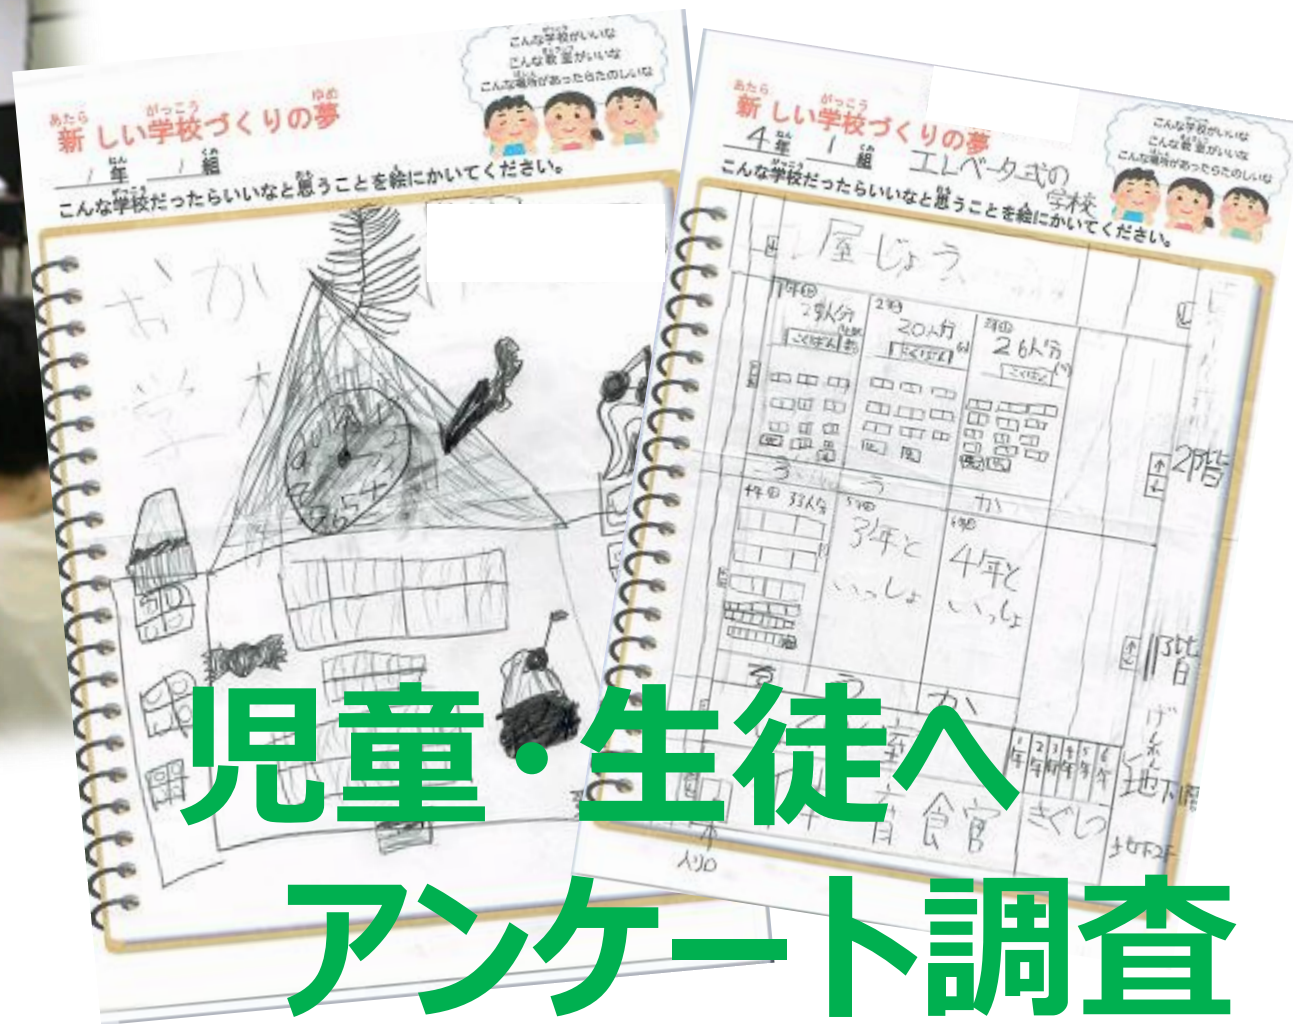 こんな学校がいいな
こんな教室がいいな
こんな場所があったらたのしいな
新しい学校づくりの夢
1年 1組
こんな学校だったらいいなと思うことを絵にかいてください。
おか
学
こんな学校がいいな
こんな教室がいいな
こんな場所があったらたのしいな
新しい学校づくりの夢
4年 1組
エレベータ式の
学校
こんな学校だったらいいなと思うことを絵にかいてください。
屋じょう
20人分
26人分
こくばん
こくばん
こくばん
2階
ろうか
33人分
3年と
いっしょ
4年と
いっしょ
1階
ろうか
1年 2年 3年 4年 5年 6年
地下
きぐしつ
入り口
児童・生徒へ
アンケート調査